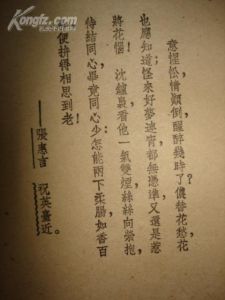 Kongfz.com
意惺忪，情顛倒，醒醉幾時了？儂替花愁花
也應知道；怪來好夢連宵都無憑準，又還是惹
將花惱！　沈鑪裏，看他一氣雙煙，絲絲向縈抱，
待結同心，畢竟同心少；怎能兩下柔腸，如香百
便拚得相思到老！
——張惠言　祝英臺近。